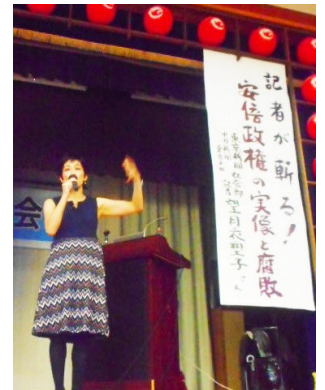 記者が斬る!
安倍政権の実像と腐敗
東京新聞社会部 記者 望月衣塑子さん
会